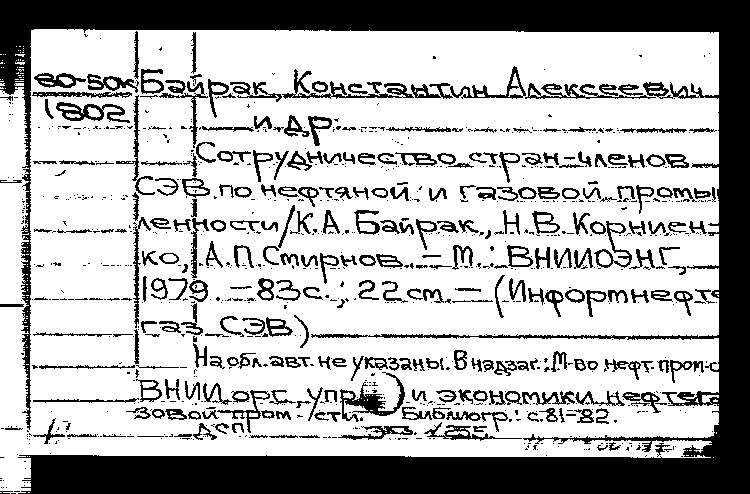 80-50к Байрак, Константин Алексеевич
1802
и др.
Сотрудничество стран-членов
СЭВ по нефтяной и газовой промыш
ленности/К.А. Байрак, Н.В. Корниен-
ко, А.П. Смирнов. – М.: ВНИИОЭНГ,
1979. – 83 с.; 22 см. – (Информнефте
газ СЭВ)
На обл. авт. не указаны. В надзаг.: М-во нефт. пром-с
ВНИИ орг., упр и экономики нефтега
зовой пром-сти. Библиогр.: с. 81-82.
ДСП экз. 1255